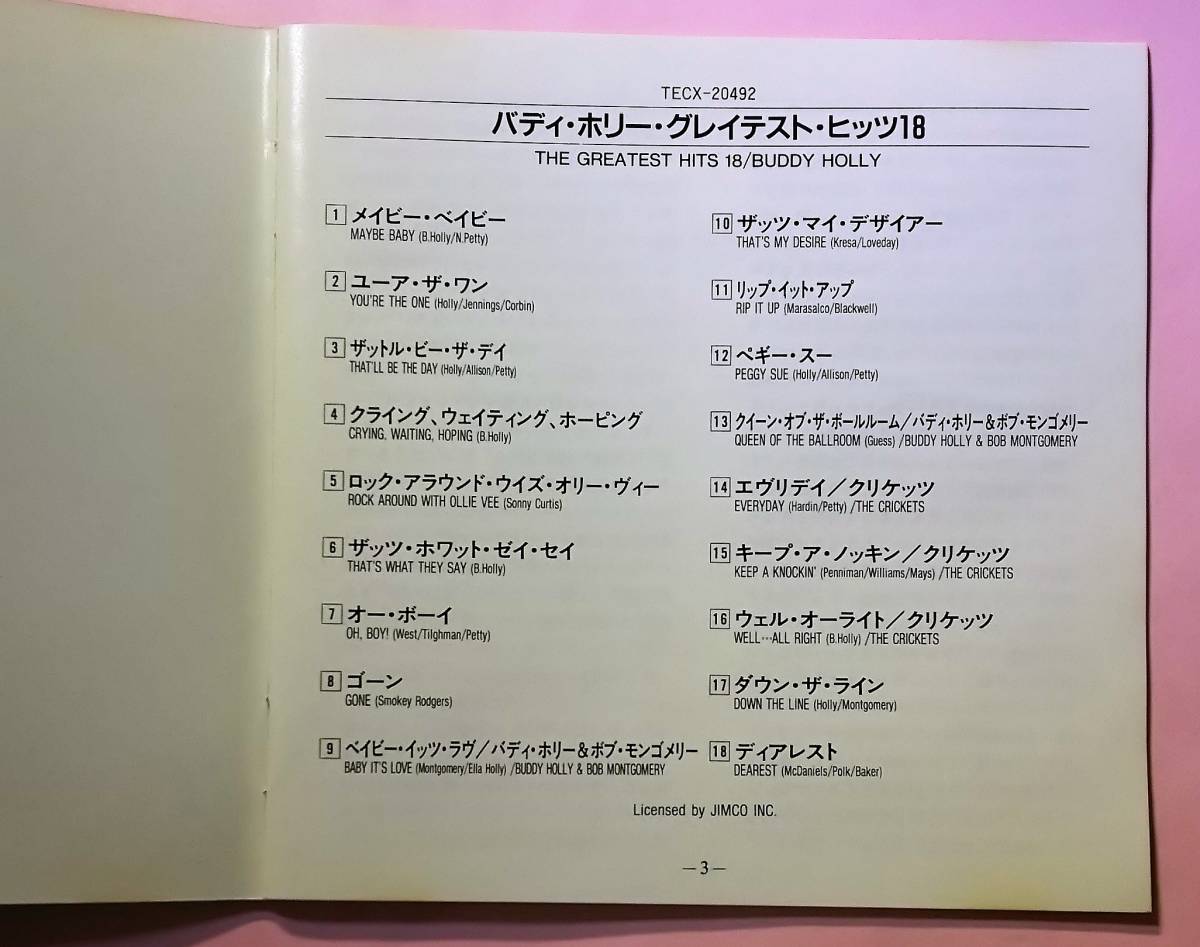 TECX-20492
バディ・ホリー・グレイテスト・ヒッツ18
THE GREATEST HITS 18/BUDDY HOLLY
1 メイビー・ベイビー
MAYBE BABY (B.Holly/N.Petty)
2 ユーア・ザ・ワン
YOU'RE THE ONE (Holly/Jennings/Corbin)
3 ザットル・ビー・ザ・デイ
THAT'LL BE THE DAY (Holly/Allison/Petty)
4 クライング、ウェイティング、ホーピング
CRYING, WAITING, HOPING (B.Holly)
5 ロック・アラウンド・ウイズ・オリー・ヴィー
ROCK AROUND WITH OLLIE VEE (Sonny Curtis)
6 ザッツ・ホワット・ゼイ・セイ
THAT'S WHAT THEY SAY (B.Holly)
7 オー・ボーイ
OH, BOY! (West/Tilghman/Petty)
8 ゴーン
GONE (Smokey Rodgers)
9 ベイビー・イッツ・ラヴ/バディ・ホリー&ボブ・モンゴメリー
BABY IT'S LOVE (Montgomery/Ella Holly) /BUDDY HOLLY & BOB MONTGOMERY
10 ザッツ・マイ・デザイアー
THAT'S MY DESIRE (Kresa/Loveday)
11 リップ・イット・アップ
RIP IT UP (Marasalco/Blackwell)
12 ペギー・スー
PEGGY SUE (Holly/Allison/Petty)
13 クイーン・オブ・ザ・ボールルーム/バディ・ホリー&ボブ・モンゴメリー
QUEEN OF THE BALLROOM (Guess) /BUDDY HOLLY & BOB MONTGOMERY
14 エヴリデイ/クリケッツ
EVERYDAY (Hardin/Petty) /THE CRICKETS
15 キープ・ア・ノッキン/クリケッツ
KEEP A KNOCKIN' (Penniman/Williams/Mays) /THE CRICKETS
16 ウェル・オーライト/クリケッツ
WELL…ALL RIGHT (B.Holly) /THE CRICKETS
17 ダウン・ザ・ライン
DOWN THE LINE (Holly/Montgomery)
18 ディアレスト
DEAREST (McDaniels/Polk/Baker)
Licensed by JIMCO INC.
—3—